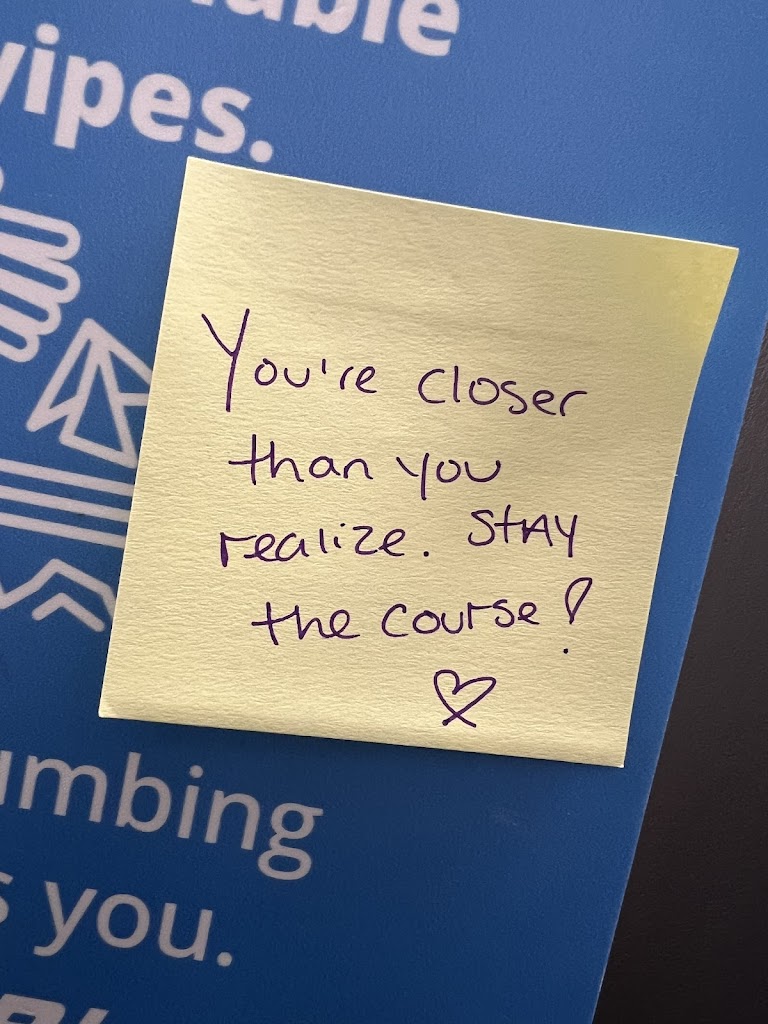 wipes.
You're closer
than you
realize. StAY
the course!
you.